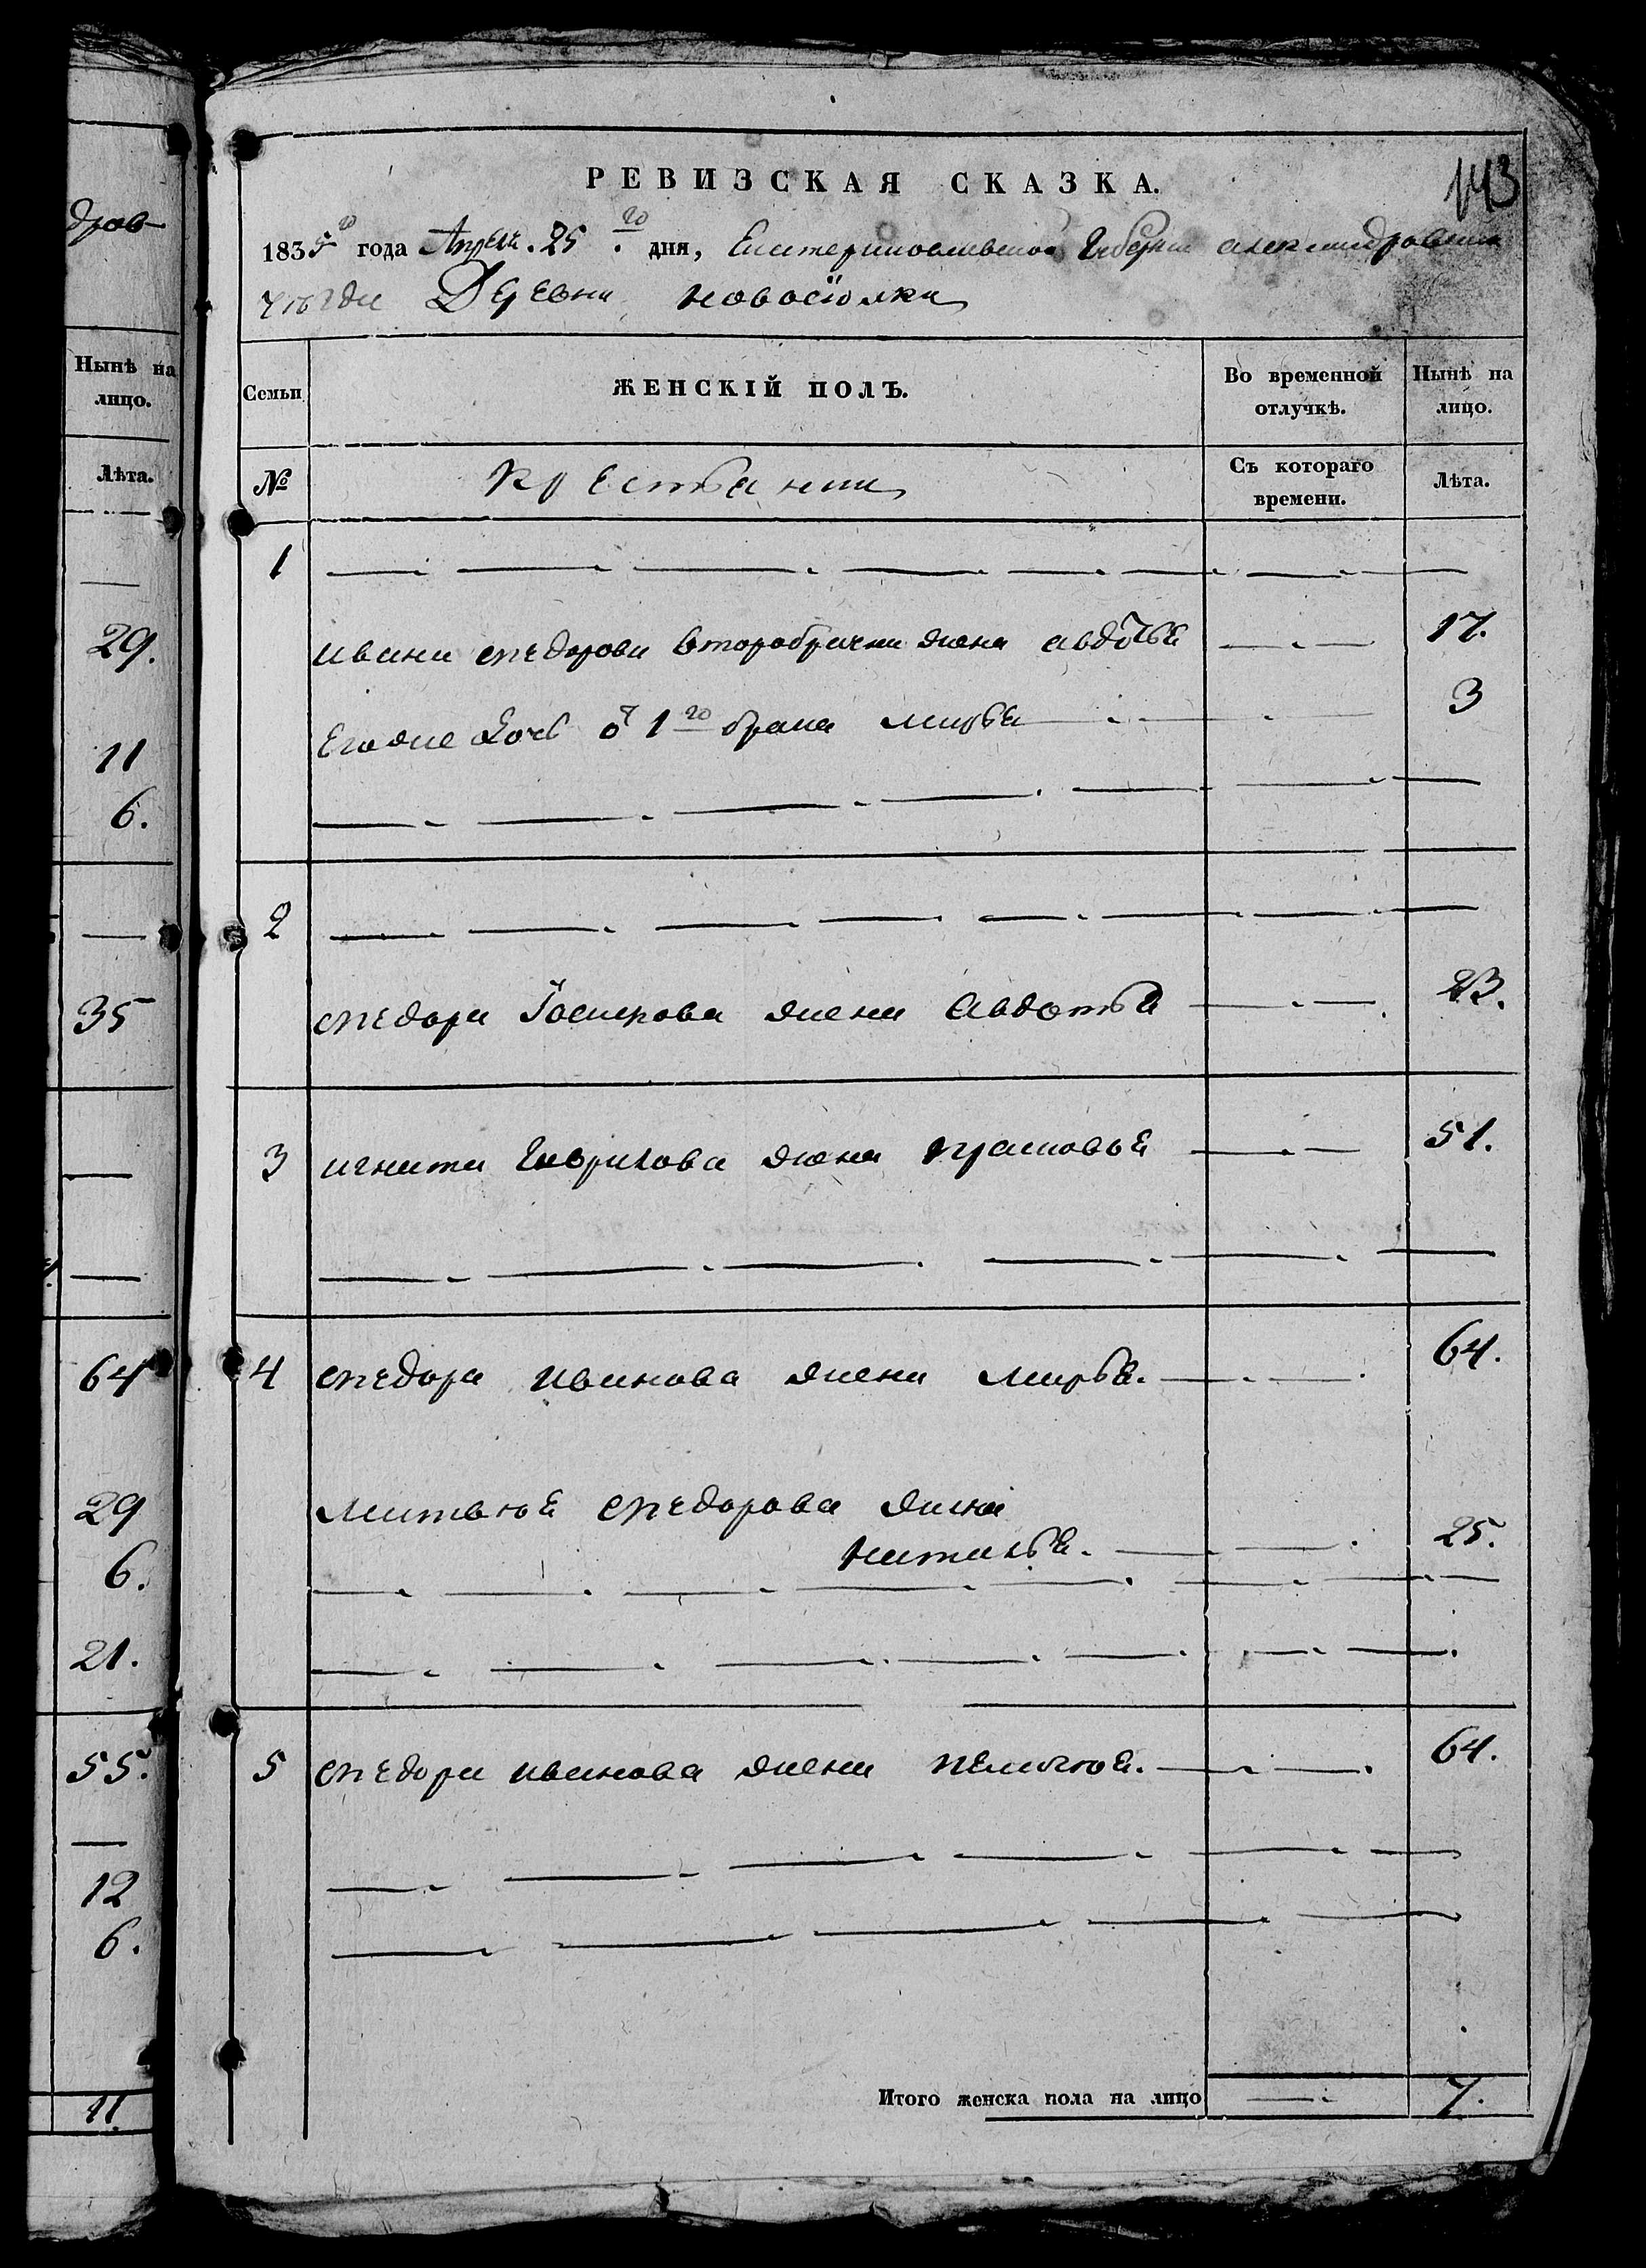 драв-
Нынѣ на
лицо.
Лѣта.
29.
11
6.
35
64
29
6.
21.
55.
12
6.
11.
143
РЕВИЗСКАЯ СКАЗКА.
1835го года Апреля 25го дня, Екатеринославской Губернии александровскаго
уѣзда Деревни новосіолки
Семьи ЖЕНСКІЙ ПОЛЪ. Во временной отлучкѣ. Нынѣ на лицо.
№ Крестьянки Съ котораго времени. Лѣта.
1
ивана федорова второбрачна жена авдотья 17.
Егоже дочь от 1го брака марья 3
2
федора Іосипова жена авдотья 23.
3 игната гаврилова жена прасковья 51.
4 федора иванова жена марья. 64.
матвея федорова жена
наталья. 25.
5 федора иванова жена пелагея. 64.
Итого женска пола на лицо 7.